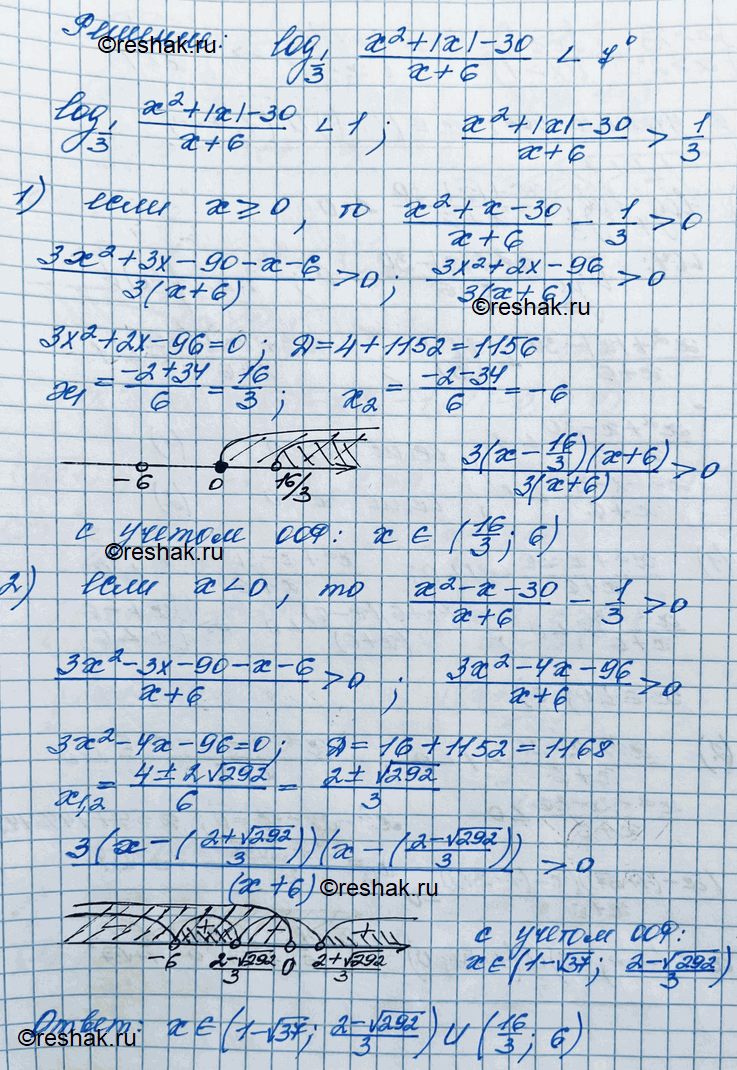 Решение: log_{1/3} (x²+|x|-30)/(x+6) < 7⁰
©reshak.ru
log_{1/3} (x²+|x|-30)/(x+6) < 1; (x²+|x|-30)/(x+6) > 1/3
1) если x≥0, то (x²+x-30)/(x+6) - 1/3 > 0
(3x²+3x-90-x-6)/(3(x+6)) > 0; (3x²+2x-96)/(3(x+6)) > 0
©reshak.ru
3x²+2x-96=0; D=4+1152=1156
x₁ = (-2+34)/6 = 16/3; x₂ = (-2-34)/6 = -6
-6 0 16/3 (3(x-16/3)(x+6))/(3(x+6)) > 0
с учетом ООФ: x ∈ (16/3; 6)
©reshak.ru
2) если x<0, то (x²-x-30)/(x+6) - 1/3 > 0
(3x²-3x-90-x-6)/(x+6) > 0; (3x²-4x-96)/(x+6) > 0
3x²-4x-96=0; D=16+1152=1168
x₁,₂ = (4±2√292)/6 = (2±√292)/3
(3(x-((2+√292)/3))(x-((2-√292)/3)))/(x+6) > 0
©reshak.ru
- + - +
-6 (2-√292)/3 0 (2+√292)/3
с учетом ООФ:
x∈(1-√37; (2-√292)/3)
Ответ: x∈(1-√37; (2-√292)/3) ∪ (16/3; 6)
©reshak.ru